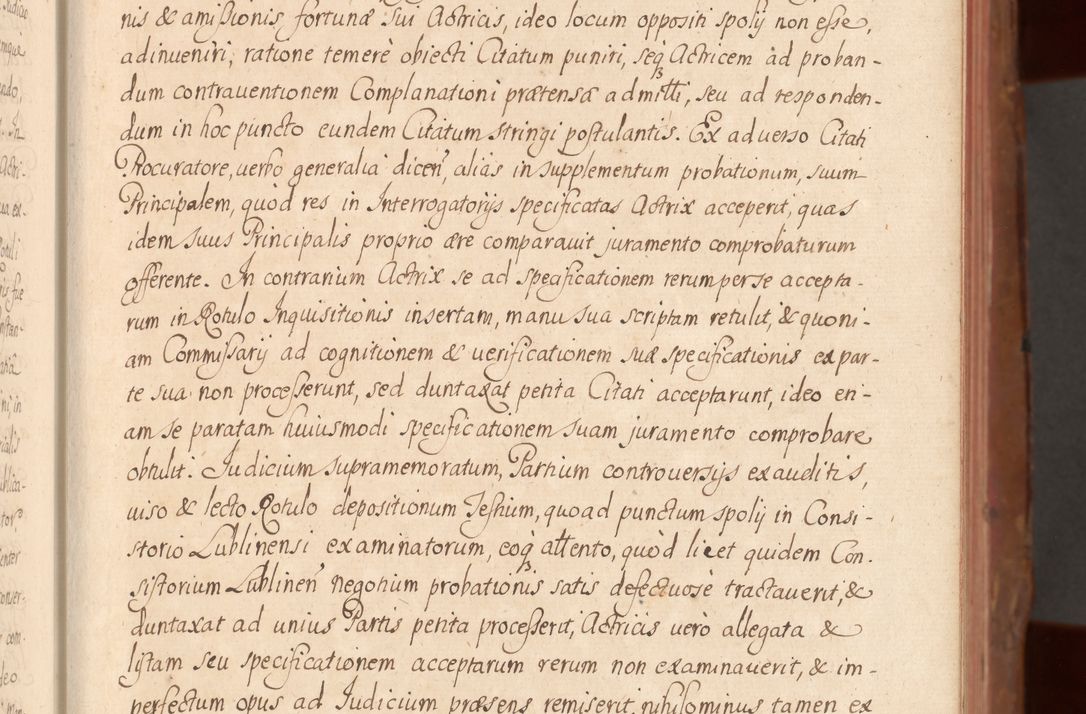 nis & amissionis fortunæ sui Actricis, ideo locum oppositi spolij non esse,
adinueniri, ratione temerè obiecti Citatum puniri, seq₃ Actricem ad proban-
dum contrauentionem Complanationi prætensæ admitti, seu ad responden-
dum in hoc puncto eundem Citatum stringi postulantis. Ex aduerso Citati
Procuratore, uerbo generalia dicen̄, alias in supplementum probationum, suum
Principalem, quòd res in Interrogatorijs specificatas Actrix acceperit, quas
idem suus Principalis proprio ære comparauit juramento comprobaturum
offerente. In contrarium Actrix se ad specificationem rerum per se accepta-
rum in Rotulo Inquisitionis insertam, manu sua scriptam retulit, & quoni-
am Commissarij ad cognitionem & uerificationem suæ specificationis ex par-
te sua non processerunt, sed duntaxat petita Citati acceptarunt, ideo eti-
am se paratam huiusmodi specificationem suam juramento comprobare
obtulit. Judicium supramemoratum, Partium controuersijs exauditis,
uiso & lecto Rotulo depositionum Testium, quoad punctum spolij in Consi-
storio Lublinensi examinatorum, eoq₃ attento, quòd licet quidem Con-
sistorium Lublinen̄ negotium probationis satis defectuosè tractauerit, &
duntaxat ad unius Partis petita processerit, Actricis uerò allegata &
listam seu specificationem acceptarum rerum non examinauerit, & im-
perfectum opus ad Judicium præsens remiserit, nihilominus tamen ex